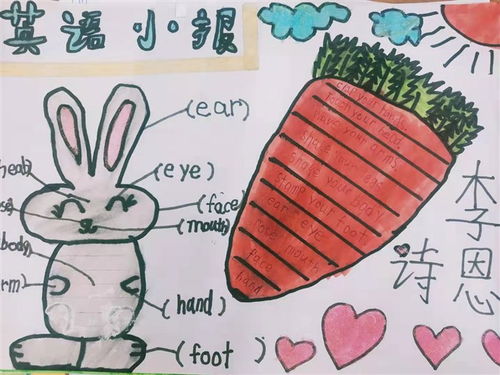 英语小报
(ear)
(eye)
head)
(face)
(mouth)
body)
rm)
(hand)
(foot )
clap your hands.
Touch your head.
your arms.
shake your legs
shake your body
stamp your foot
ear eye
nose mouth
face
hand
木子恩
诗